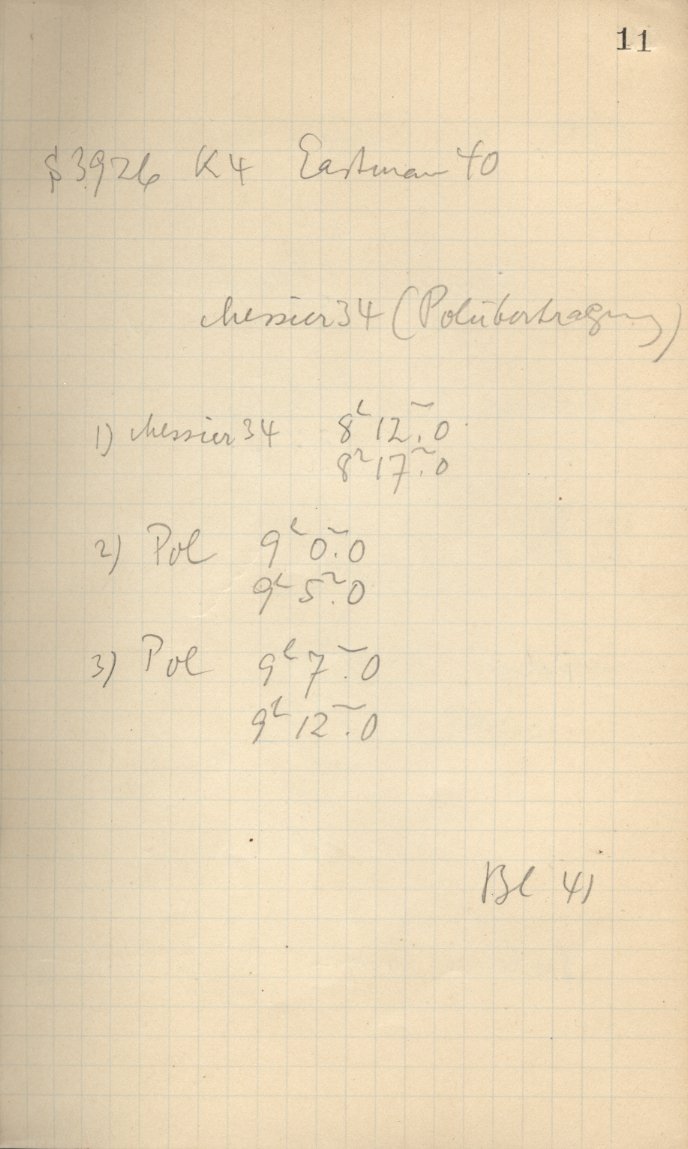 11
S3926 K4 Eastman 40
Messier 34 (Polübertragung)
1) Messier 34 8ʰ12ᵐ.0
8ʰ17ᵐ.0
2) Pol 9ʰ0ᵐ.0
9ʰ5ᵐ.0
3) Pol 9ʰ7ᵐ.0
9ʰ12ᵐ.0
Bl 41